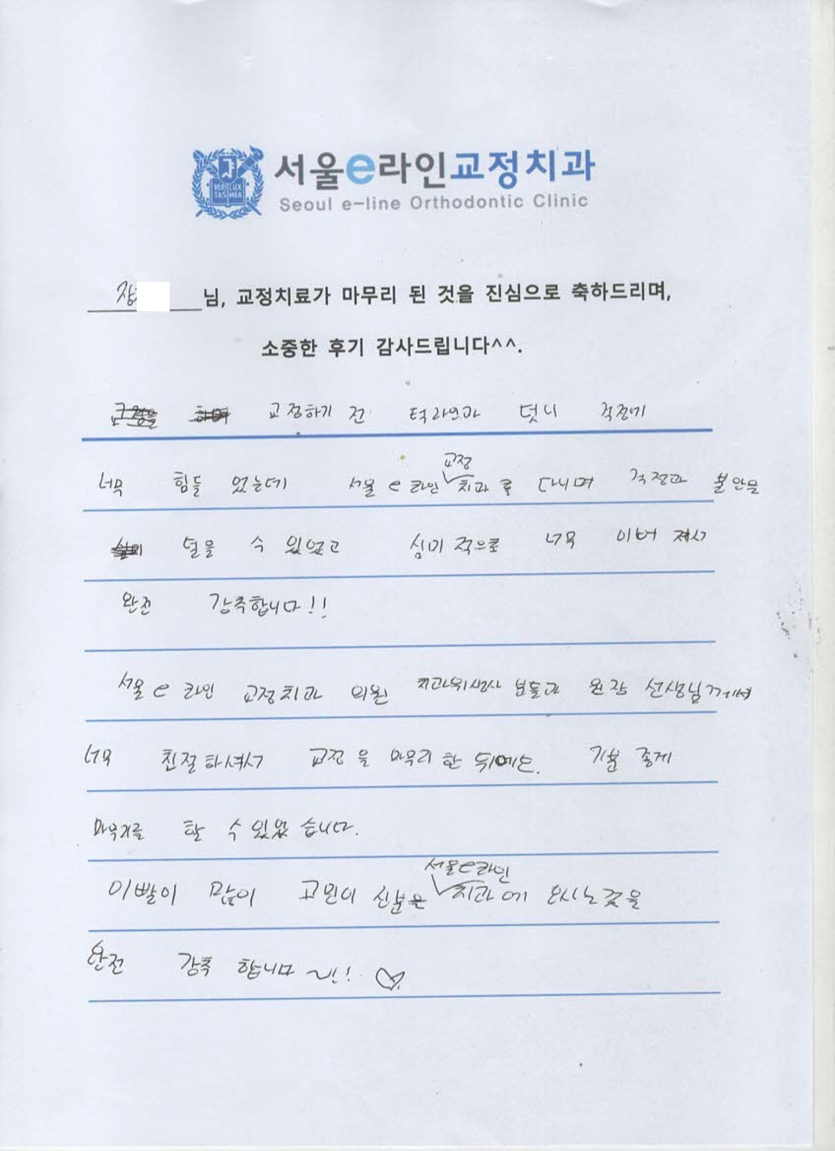 서울e라인교정치과
VERI LUX TAS MEA
Seoul e-line Orthodontic Clinic
장 님, 교정치료가 마무리 된 것을 진심으로 축하드리며,
소중한 후기 감사드립니다^^.
교정하기 전 턱라인과 덧니 걱정에
너무 힘들 었는데 서울 e 라인 교정 치과 를 다니며 걱정과 불안을
덜을 수 있었고 심미 적으로 너무 이뻐 져서
완전 강추합니다!!
서울 e 라인 교정치과 의원 치과위생사 분들과 원장 선생님께서
너무 친절하셔서 교정 을 마무리 한 뒤에도. 기분 좋게
마무리를 할 수 있었 습니다.
이빨이 많이 고민이 신분은 서울e라인 치과에 오시는것을
완전 강추 합니다 ~!! ♡